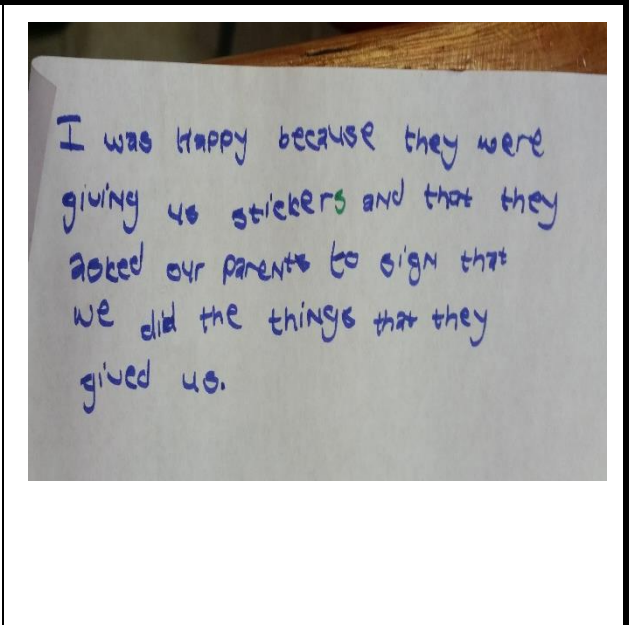 I was Happy because they were
giving us stickers and that they
asked our parents to sign that
we did the things that they
gived us.